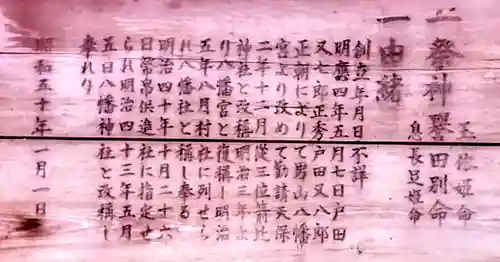 一 祭神 譽田別命
玉依姫命
息長足姫命
一 由緒
創立年月日不詳
明應四年五月七日戸田
又七郎正秀戸田又八郎
正朝により男山八幡
宮より改めて勧請天保
二年十二月從三位
神社と改稱明治三年よ
り八幡宮と復稱し明治
五年八月村社に列せら
れ八幡社と稱し奉る
明治四十年十月二十六
日常供進社に指定せ
られ明治四十三年五月
五日八幡神社と改稱し
奉れり
昭和五十年一月一日